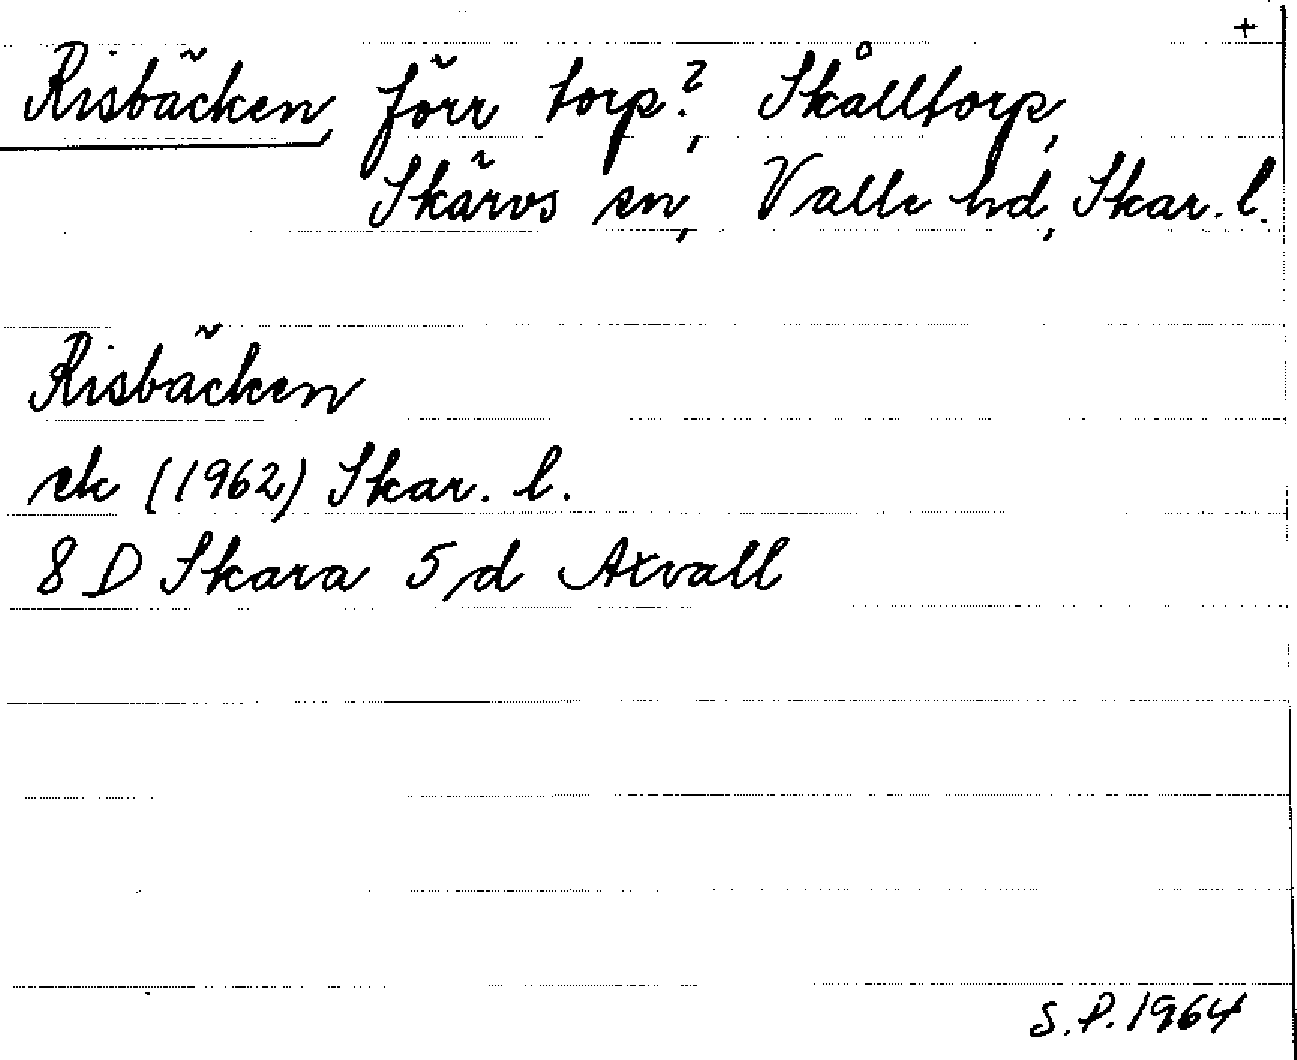 +
Risbäcken, förr torp?, Skålltorp,
Skärvs sn, Valle hd, Skar. l.
Risbäcken
ek (1962) Skar. l.
8 D Skara 5 d Axvall
S.P. 1964